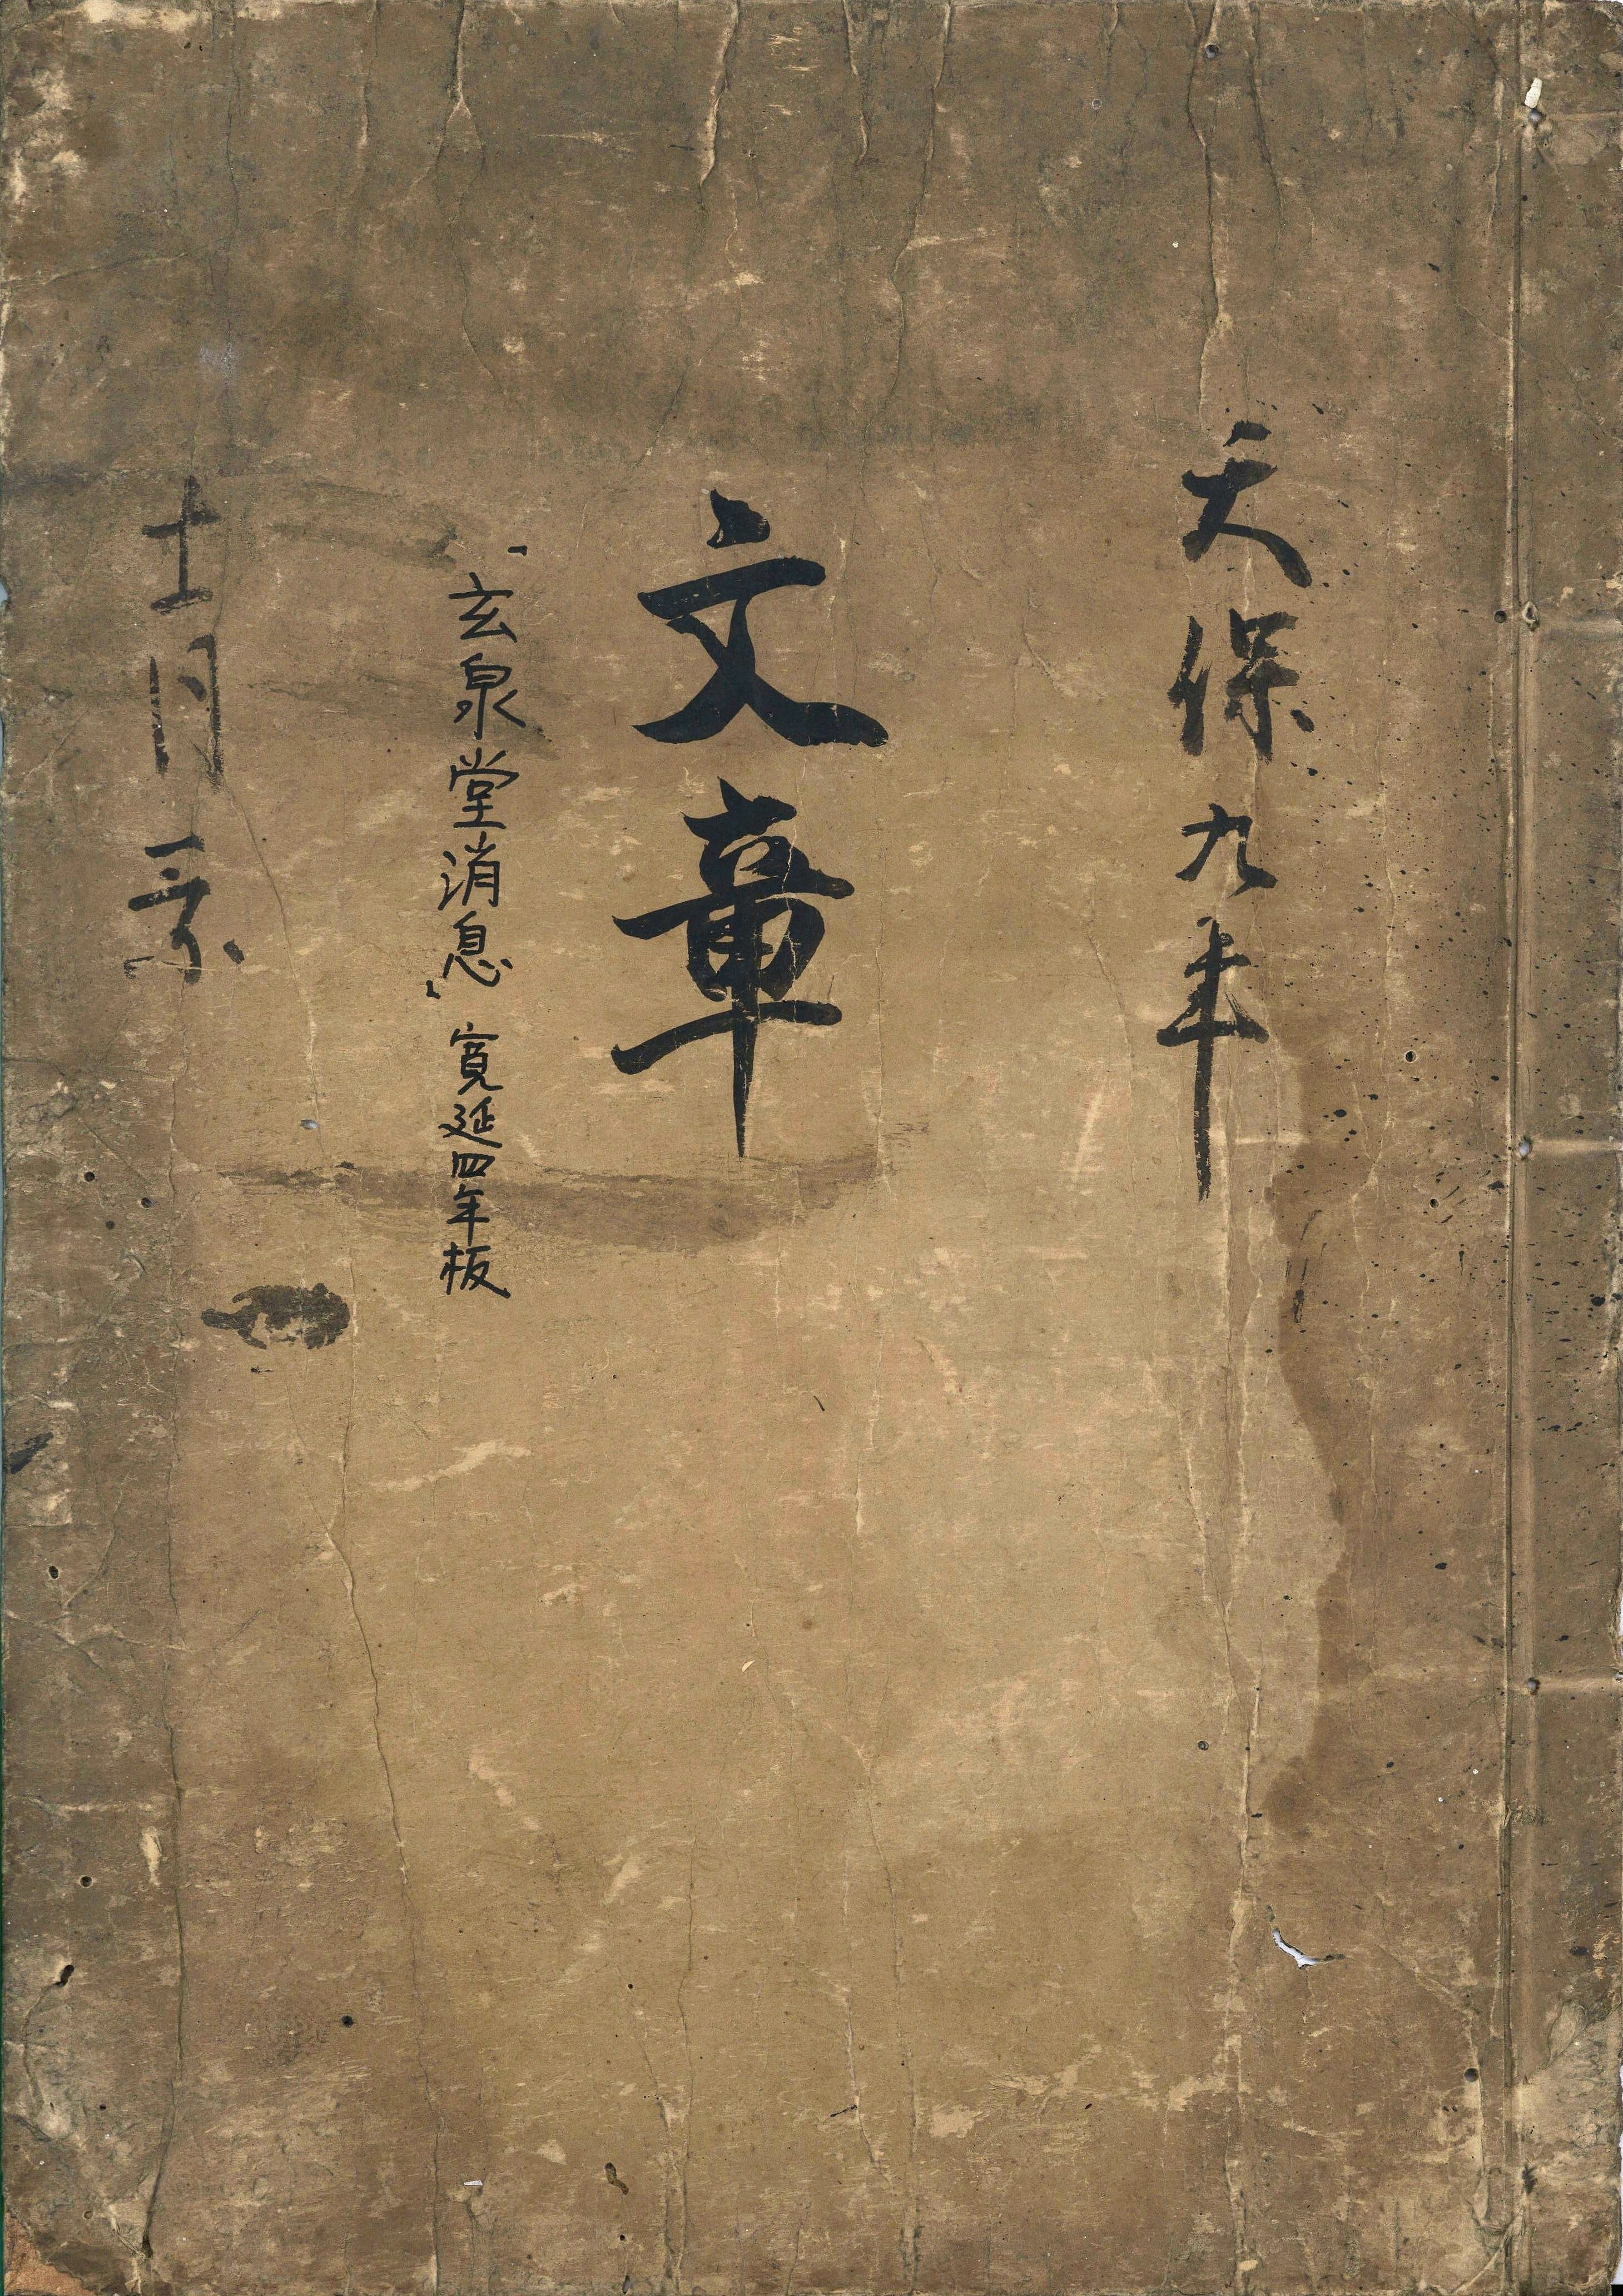 天保九年
文章
「玄泉堂消息」寛延四年板
十一月